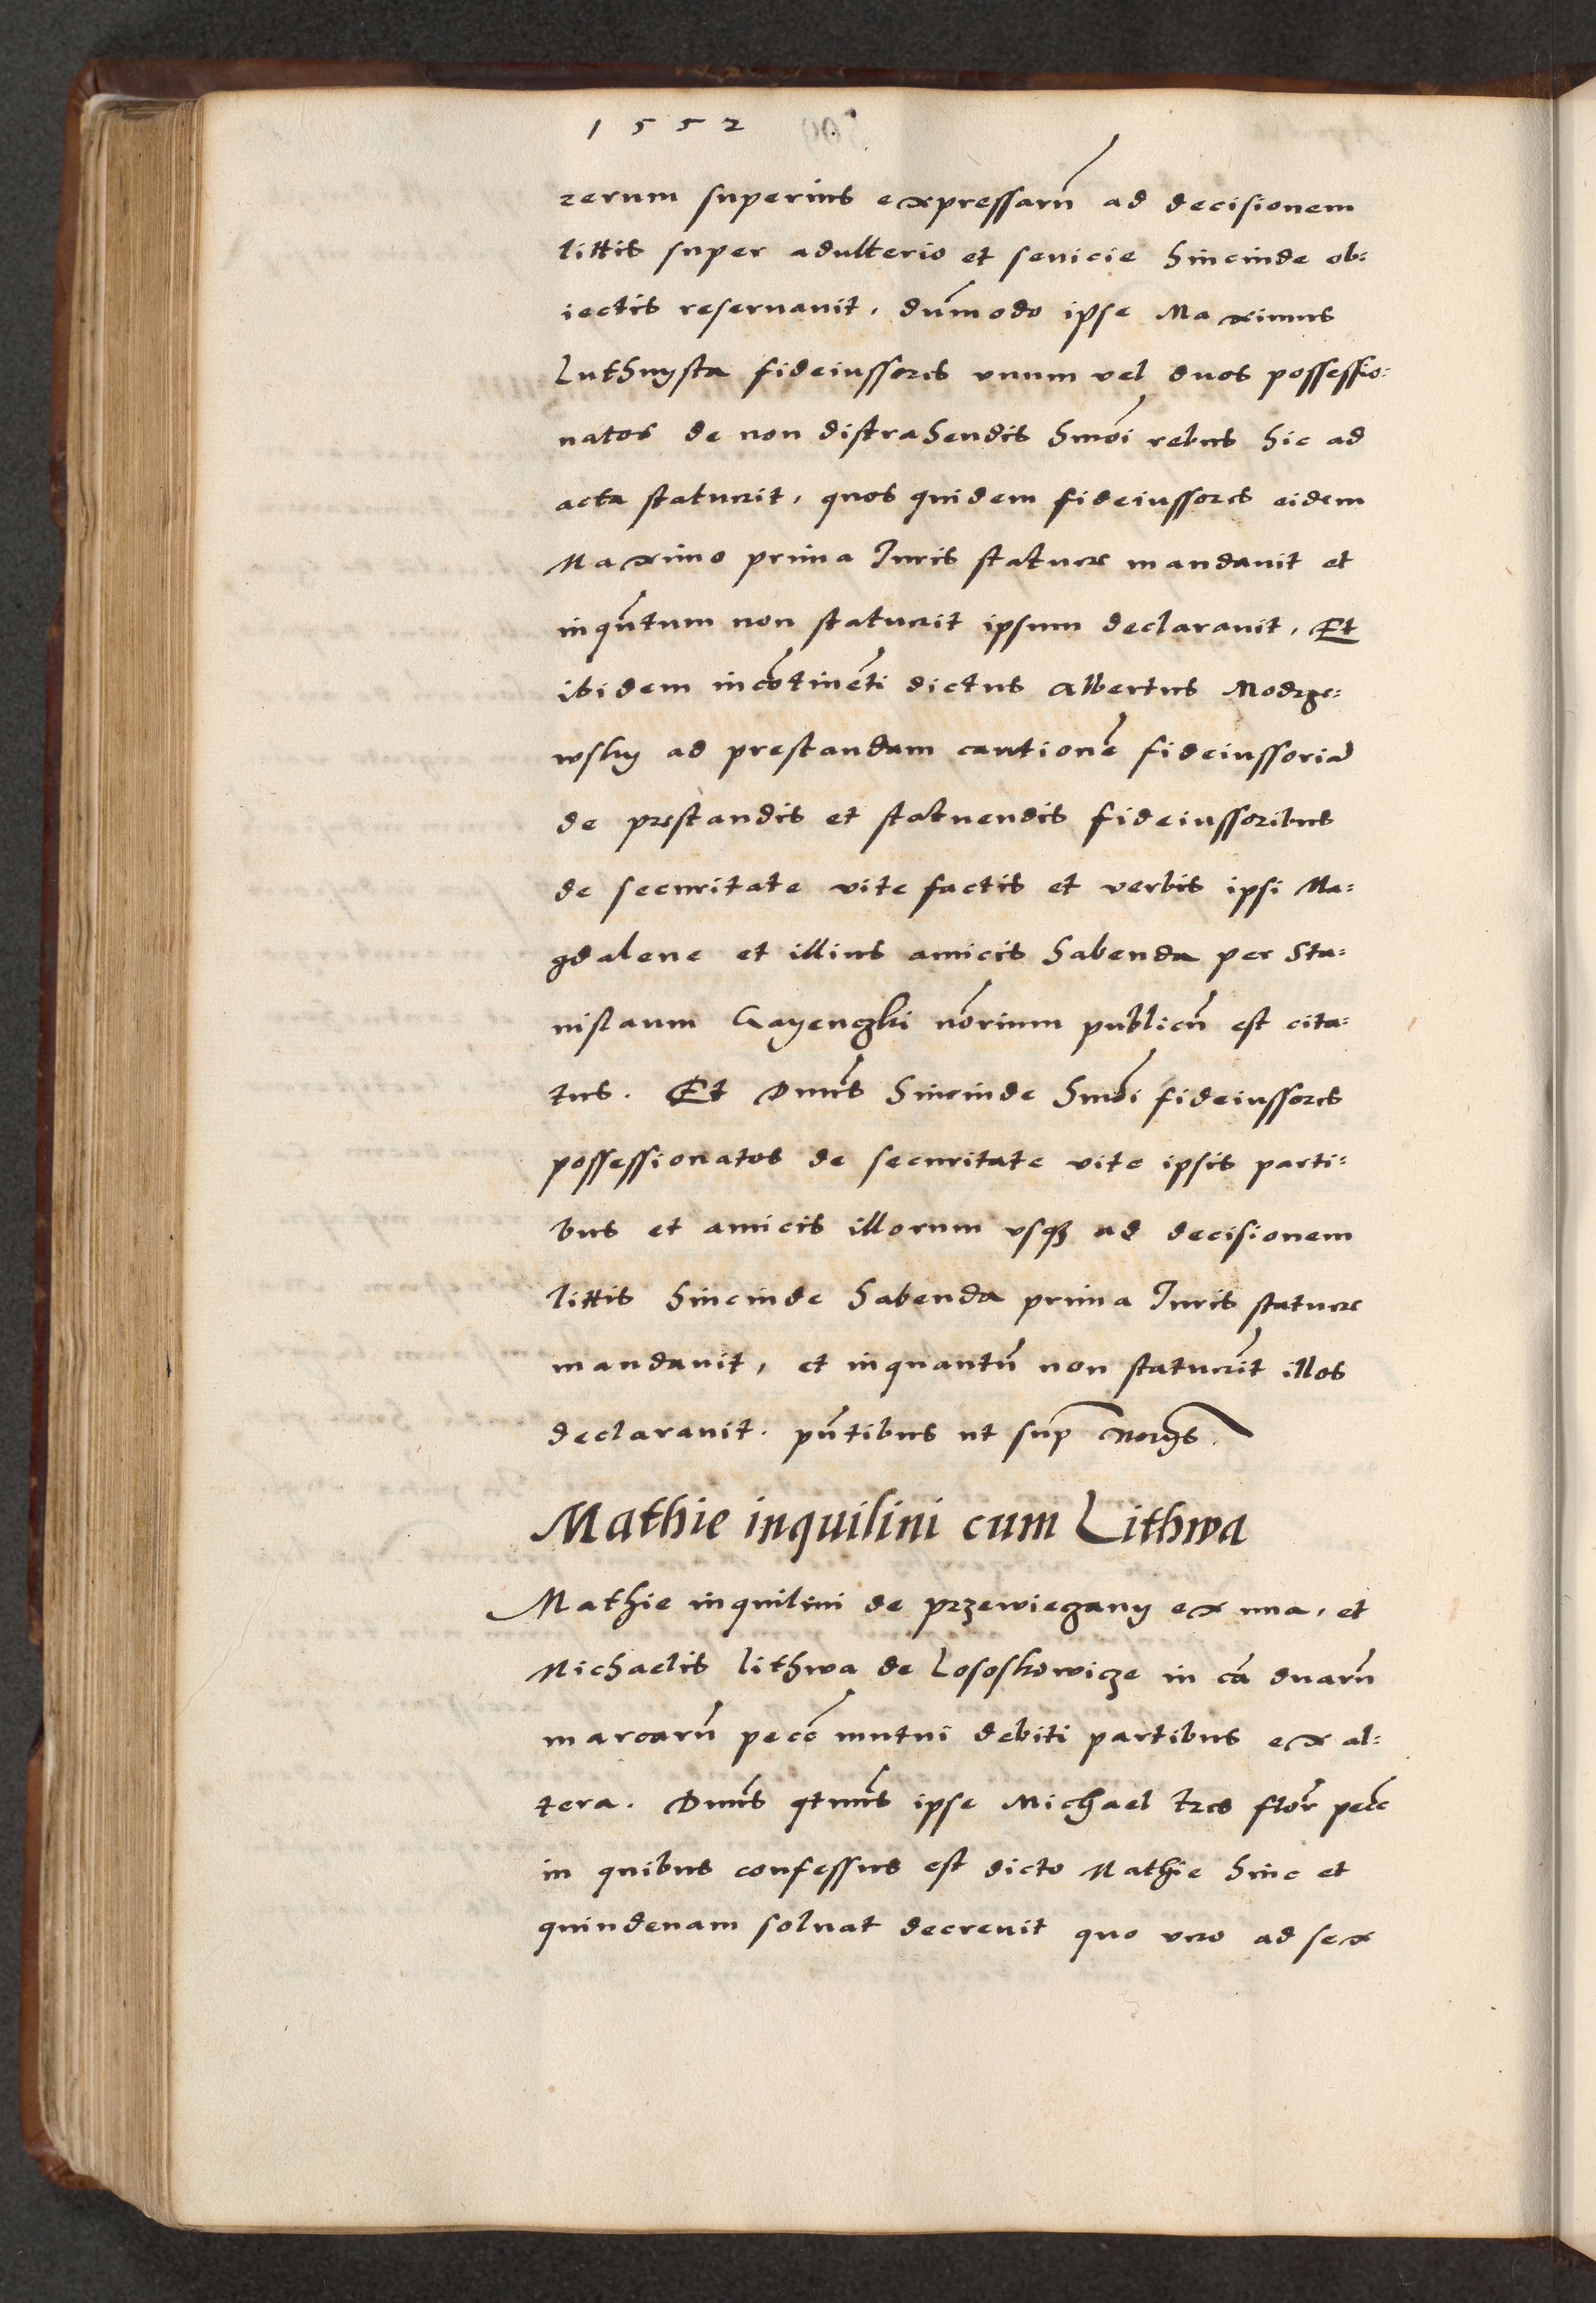 1552
rerum superius expressarū ad decisionem
littis super adulterio et sevicie hincinde ob:
iectis reservavit, dūmodo ipse Maximus
Luthnysta fideiussores vnum vel duos possessio:
natos de non distrahendis hmōi rebus hic ad
acta statuerit, quos quidem fideiussores eidem
Maximo prima Iuris statuere mandavit et
inqūtum non statuerit ipsum declaravit, Et
ibidem incōtinēti dictus Albertus Modrze:
wsky ad prestandam cautionē fideiussoriā
de prestandis et statuendis fideiussoribus
de securitate vite factis et verbis ipsi Ma:
gdalene et illius amicis habenda per Sta:
nislaum Gayenczki nōrium publicū est cita:
tus. Et Dnus hincinde hmōi fideiussores
possessionatos de securitate vite ipsis parti:
bus et amicis illorum usqʒ ad decisionem
littis hincinde habenda prima Iuris statuere
mandavit, et inquantū non statuerīt illos
declaravit. pn̄tibus ut sup̄ norijs.
Mathie inquilini cum Lithwa
Mathie inquilini de przewiegany ex una, et
Michaelis lithwa de Lososkowicze in cā duarū
marcarū pecc̄ mutui debiti partibus ex al:
tera. Dnus qtnus ipse Michael tres flor pecc̄
in quibus confessus est dicto Mathie hinc et
quindenam solvat decrevit quo vero ad sex